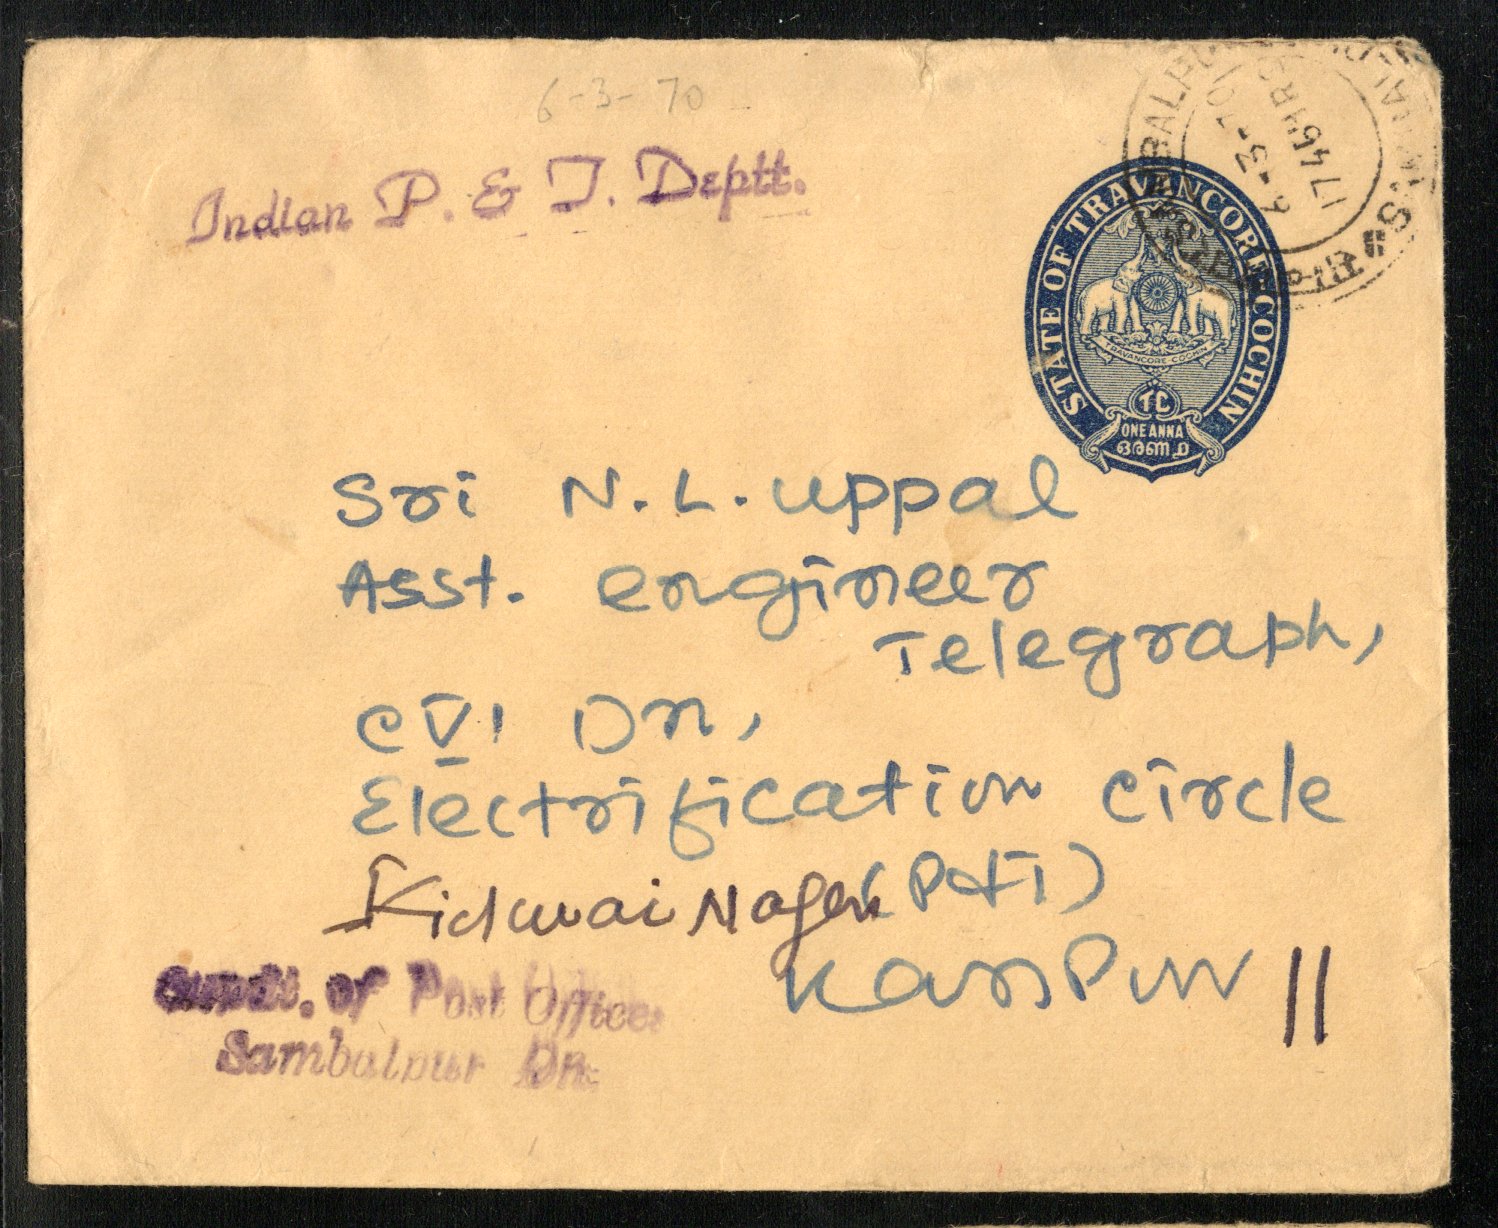 6-3-70
Indian P. & T. Deptt.
SAMBALPUR
6-3-70
1745HRS
STATE OF TRAVANCORE-COCHIN
TRAVANCORE COCHIN
TC
ONE ANNA
ഒരണ
Sri N.L. Uppal
Asst. engineer
Telegraph,
CVI Dn,
Electrification circle
(P&T)
Kidwai Nagar
Kanpur 11
Supdt. of Post Offices
Sambalpur Dn.